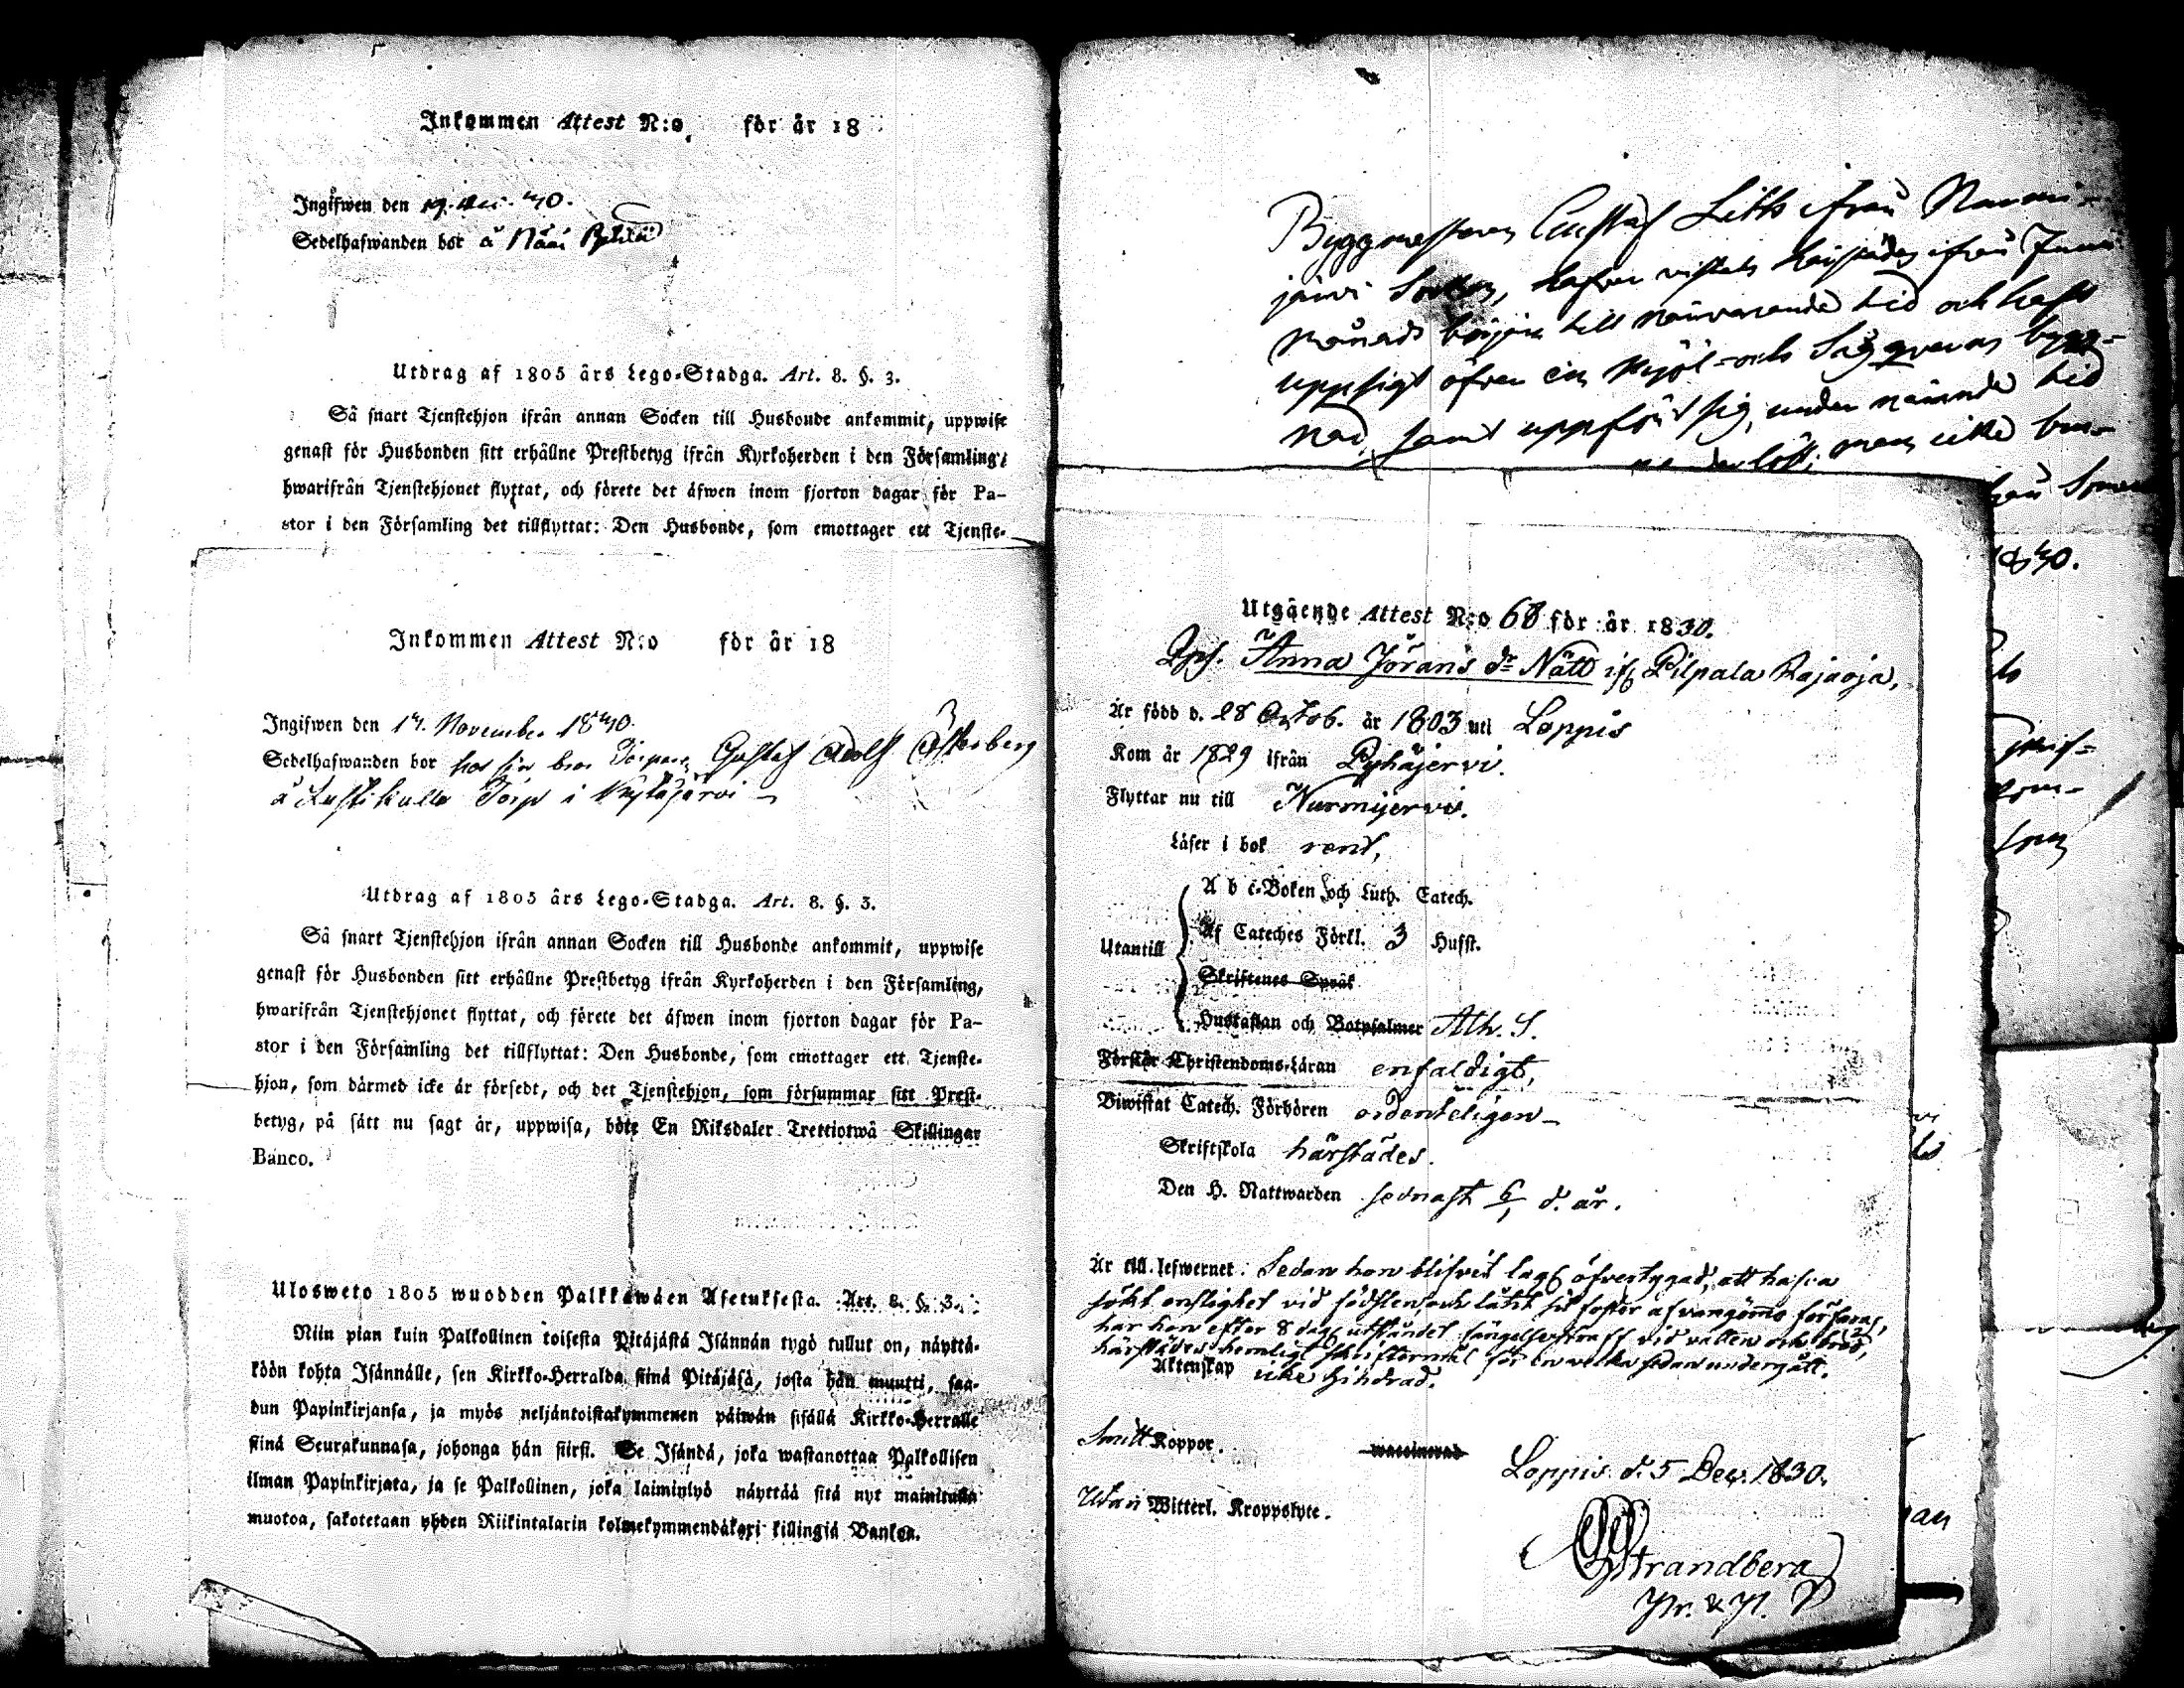 Inkommen Attest N:o för år 18
Ingifwen den 19. Dec. 40.
Sedelhafwanden bor å Nääs
Utdrag af 1805 års Lego-Stadga. Art. 8. §. 3.
Så snart Tjenstehjon ifrån annan Socken till Husbonde ankommit, uppwise
genast för Husbonden sitt erhållne Prestbetyg ifrån Kyrkoherden i den Församling,
hwarifrån Tjenstehjonet flyttat, och förete det äfwen inom fjorton dagar för Pa-
stor i den Församling det tillflyttat: Den Husbonde, som emottager ett Tjenste-
Inkommen Attest N:o för år 18
Ingifwen den 14. November 1840.
Sedelhafwanden bor hos sin bror Torparen Gustaf Adolf Österberg
å Torp i Nurmijärvi
Utdrag af 1805 års Lego-Stadga. Art. 8. §. 3.
Så snart Tjenstehjon ifrån annan Socken till Husbonde ankommit, uppwise
genast för Husbonden sitt erhållne Prestbetyg ifrån Kyrkoherden i den Församling,
hwarifrån Tjenstehjonet flyttat, och förete det äfwen inom fjorton dagar för Pa-
stor i den Församling det tillflyttat: Den Husbonde, som emottager ett Tjenste-
hjon, som därmed icke är försedt, och det Tjenstehjon, som försummar sitt Prest-
betyg, på sätt nu sagt är, uppwisa, böte En Riksdaler Trettiotwå Skillingar
Banco.
Ulosweto 1805 wuodden Palkkawäen Asetuksesta. Art. 8. §. 3.
Niin pian kuin Palkollinen toisesta Pitäjästä Isännän tygö tullut on, näyttä-
köön kohta Isännälle, sen Kirkko-Herralda siinä Pitäjäsä, josta hän muutti, saa-
dun Papinkirjansa, ja myös neljäntoistakymmenen päiwän sisällä Kirkko-Herralle
siinä Seurakunnasa, johonga hän siirsi. Se Isändä, joka wastanottaa Palkollisen
ilman Papinkirjata, ja se Palkollinen, joka laiminlyö näyttää sitä nyt mainitulla
muotoa, sakotetaan yhden Riikintalarin kolmekymmendäkaxi killingiä Bankoa.
Byggmästaren Gustaf ifrån Nurmi-
järvi Socken, hafver vistats härstädes ifrån Juni
månads början till närvarande tid och haft
uppsigt öfver en Mjöl- och Sågqvarns bygg-
nad, samt uppfört sig, under nämnde tid
men icke
1840.
Utgående Attest N:o 68 för år 1830.
Anna Jörans dr Nätt if. Pilpala Rajaoja,
Är född d. 28 Octob. år 1803 uti Loppis
Kom år 1829 ifrån Pyhäjervi.
Flyttar nu till Nurmijervi.
Läser i bok rent,
Utantill
A b c-Boken och Luth. Catech.
Af Cateches Förkl. 3 Hufst.
Skriftenes Språk
Hustaflan och Botpsalmer Ath. S.
Förstår Christendoms-Läran enfaldigt,
Biwistat Catech. Förhören ordenteligen
Skriftskola härstädes.
Den H. Nattwarden sednast 6/1 d. år.
Är till lefwernet: Sedan hon blifvit lagl. öfvertygad, att hafva
sökt enslighet vid födslen, och låtit sit foster af vangömo förfaras,
har hon efter 8 dags utståndet fängelsestraff vid vatten och bröd,
härstädes hemligt skriftermål för en vecka sedan undergått.
Äktenskap icke hindrad.
Smitt Koppor. waccinerad
Loppis d. 5 Dec. 1830.
Utan Witterl. Kroppslyte.
Strandberg